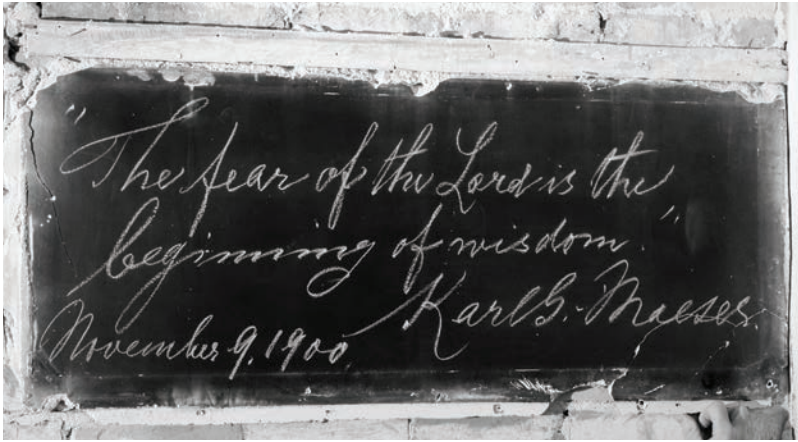 "The fear of the Lord is the
beginning of wisdom."
Karl G. Maeser.
November 9, 1900